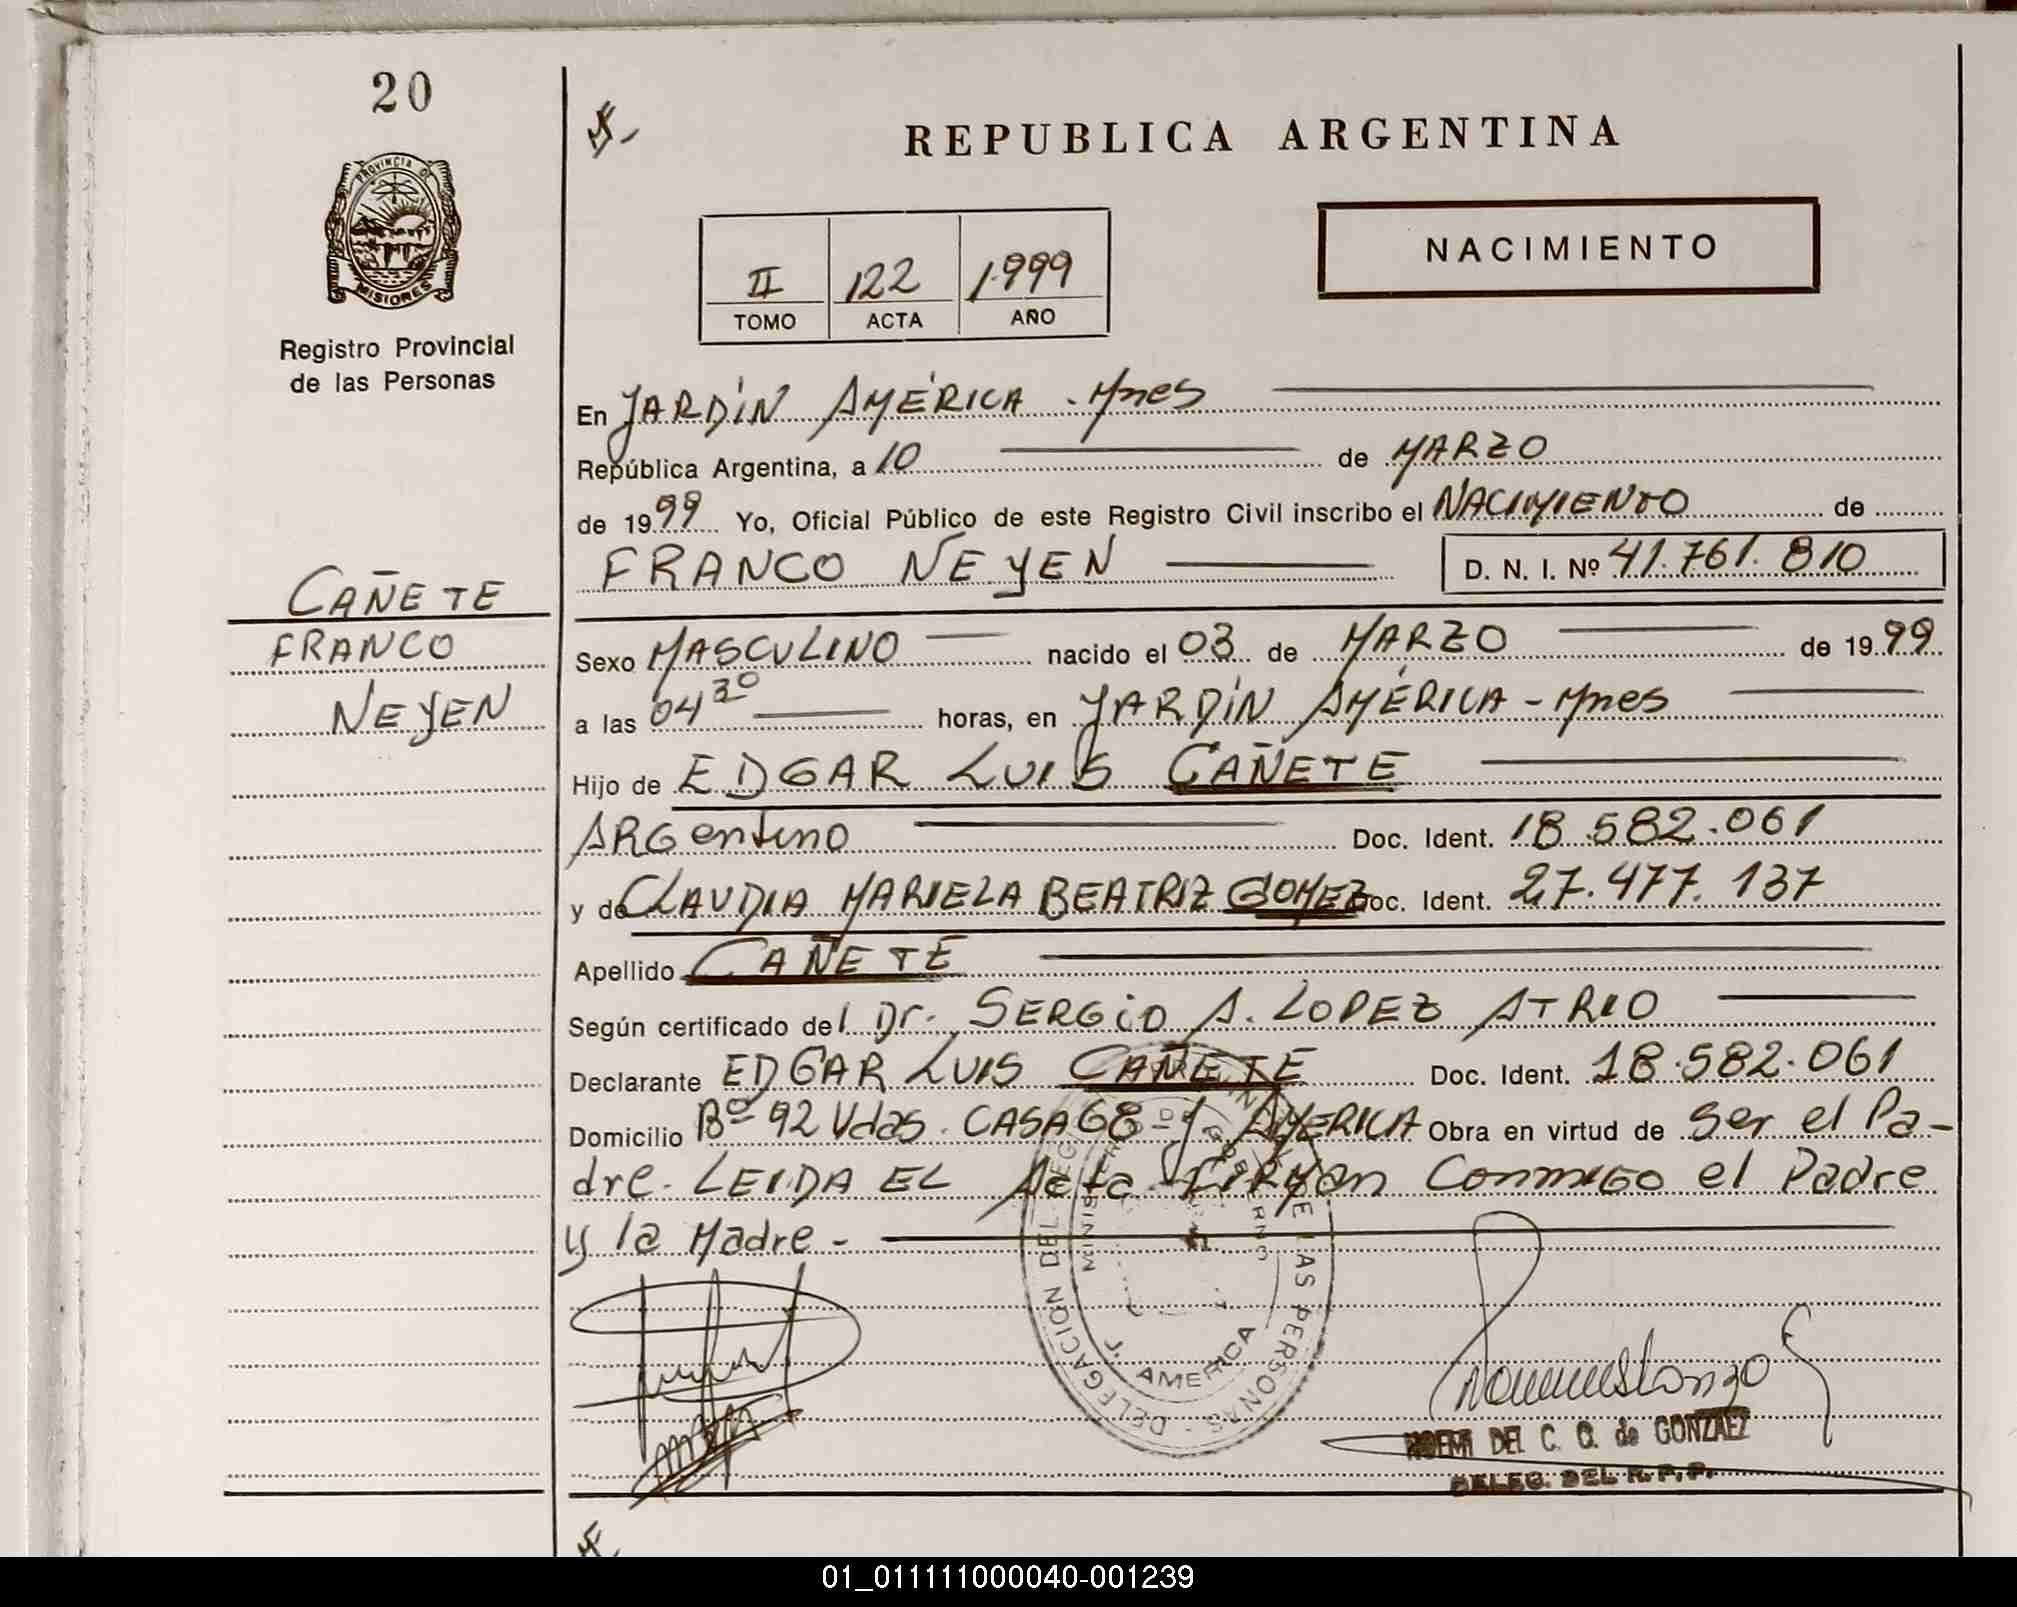 20
REPUBLICA ARGENTINA
PROVINCIA DE
MISIONES
Registro Provincial
de las Personas
II 122 1.999
TOMO ACTA AÑO
NACIMIENTO
En JARDÍN AMÉRICA - Mnes
República Argentina, a 10 de MARZO
de 1999 Yo, Oficial Público de este Registro Civil inscribo el NACIMIENTO de
FRANCO NEYEN D. N. I. Nº 41.761.810
CAÑETE
FRANCO
NEYEN
Sexo MASCULINO nacido el 03 de MARZO de 1999
a las 04 30 horas, en JARDÍN AMÉRICA - Mnes
Hijo de EDGAR LUIS CAÑETE
ARGentino Doc. Ident. 18.582.061
y de CLAUDIA MARIELA BEATRIZ GOMEZ Doc. Ident. 27.477.137
Apellido CAÑETE
Según certificado del Dr. SERGIO A. LOPEZ ATRIO
Declarante EDGAR LUIS CAÑETE Doc. Ident. 18.582.061
Domicilio Bº 92 Vdas. CASA 68 - J. AMERICA Obra en virtud de Ser el Pa-
dre. LEIDA EL Acta FIRMan Conmigo el Padre
y la Madre -
DELEGACION DEL REGISTRO DE LAS PERSONAS
MINISTERIO DE GOBIERNO
J. AMERICA
DEL C. Q. de GONZALEZ
DELEG. DEL R. P. P.
01_011111000040-001239